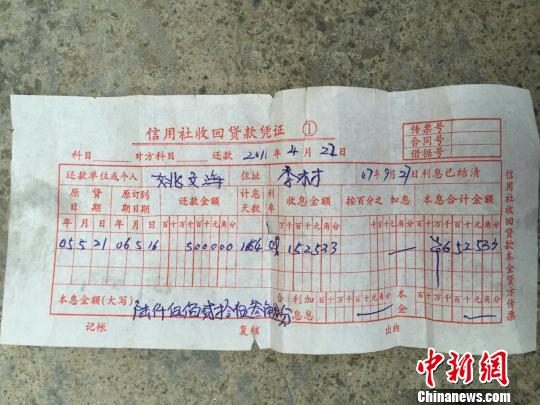 信用社收回贷款凭证 ①
科目 对方科目 还款 2011 年 4 月 22 日
传票号
合同号
借据号
还款单位或个人 文海 住址 李村 07年9月21日利息已结清
原贷日期 原订到期日期 还款金额 计息天数 利率 收息金额 按百分之 加息 本息合计金额
年 月 日 年 月 日 百十万千百十元角分 万千百十元角分 千百十元角分 百十万千百十元角分
05 5 21 06 5 16 500000 152533 — ¥652533
本息金额(大写) 陆仟伍佰贰拾伍叁角叁分 合息 利加息 百十万千百十元角分 — 本金 百十万千百十元角分 —
记帐 复核 出纳
信用社收回贷款本金贷方传票
中新网
Chinanews.com